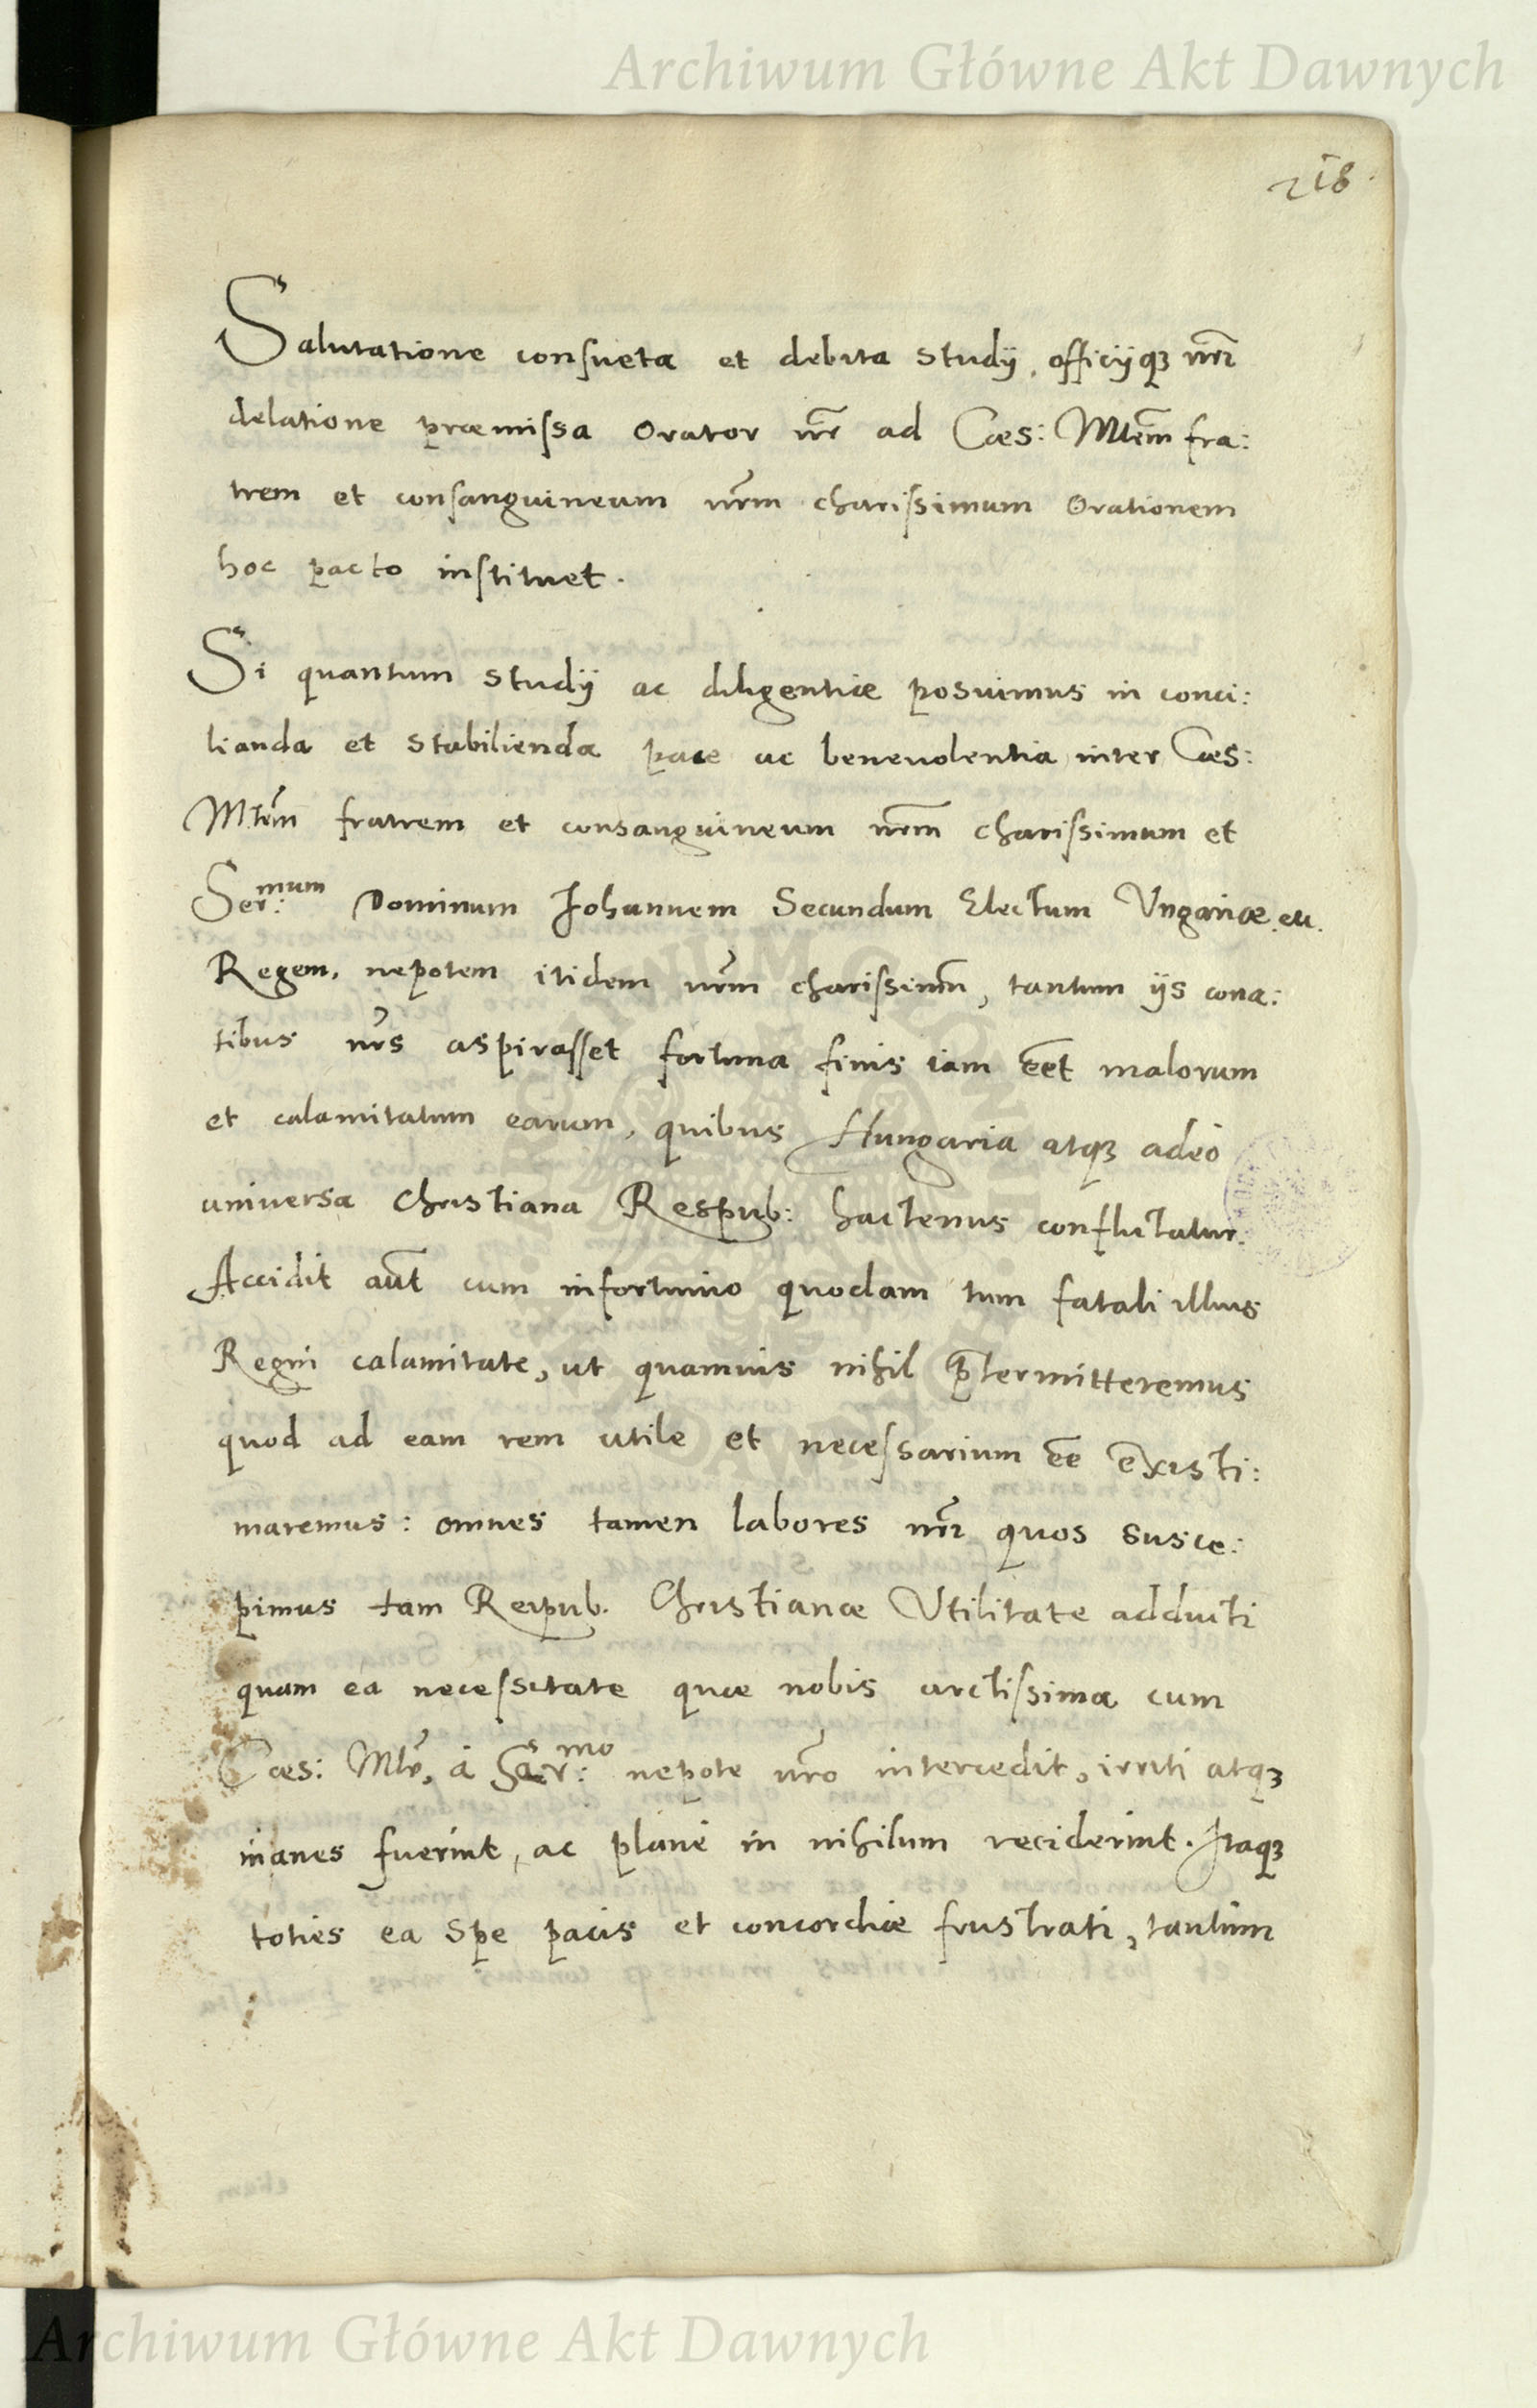 Archiwum Główne Akt Dawnych
218
Salutatione consueta et debita studij, officijq nrĩ
delatione præmissa Orator nr̃ ad Cæs: Mtem̃ fra:
trem et consanguineum nrm̃ charissimum Orationem
hoc pacto instituet.
Si quantum studij ac diligentiæ posuimus in conci:
lianda et stabilienda pace ac beneuolentia inter Cæs:
Mtem̃ fratrem et consanguineum nrm̃ charissimum et
Ser:mum Dominum Johannem Secundum Electum Vngariæ. etc.
Regem, nepotem itidem nrm̃ charissimm̃, tantum ijs cona:
tibus nr̃s aspirasset fortuna finis iam eet̃ malorum
et calamitatum earum, quibus Hungaria atq adeò
uniuersa Christiana Respub: hactenus conflictatur.
Accidit aut̃ cum infortunio quodam tum fatali illius
Regni calamitate, ut quamuis nihil p̃termitteremus
quod ad eam rem utile et necessarium ee̅ existi:
maremus: omnes tamen labores nrĩ quos susce:
pimus tam Reipub. Christianæ Vtilitate adducti
quam ea necessitate quæ nobis arctissima cum
Cæs: Mte, à Ser:mo nepote nrõ intercedit, irriti atq
inanes fuerint, ac planè in nihilum reciderint. Itaq
toties ea spe pacis et concordiæ frustrati, tantum
Archiwum Główne Akt Dawnych